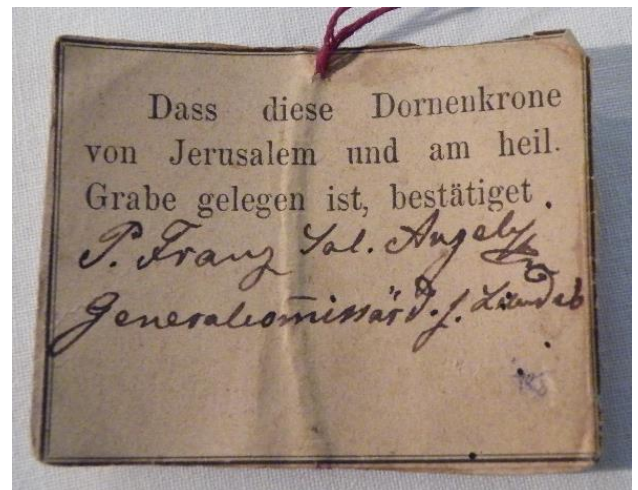 Dass diese Dornenkrone
von Jerusalem und am heil.
Grabe gelegen ist, bestätiget.
P. Franz Sal. Angely
Generalcom̅issär d. h. Landes